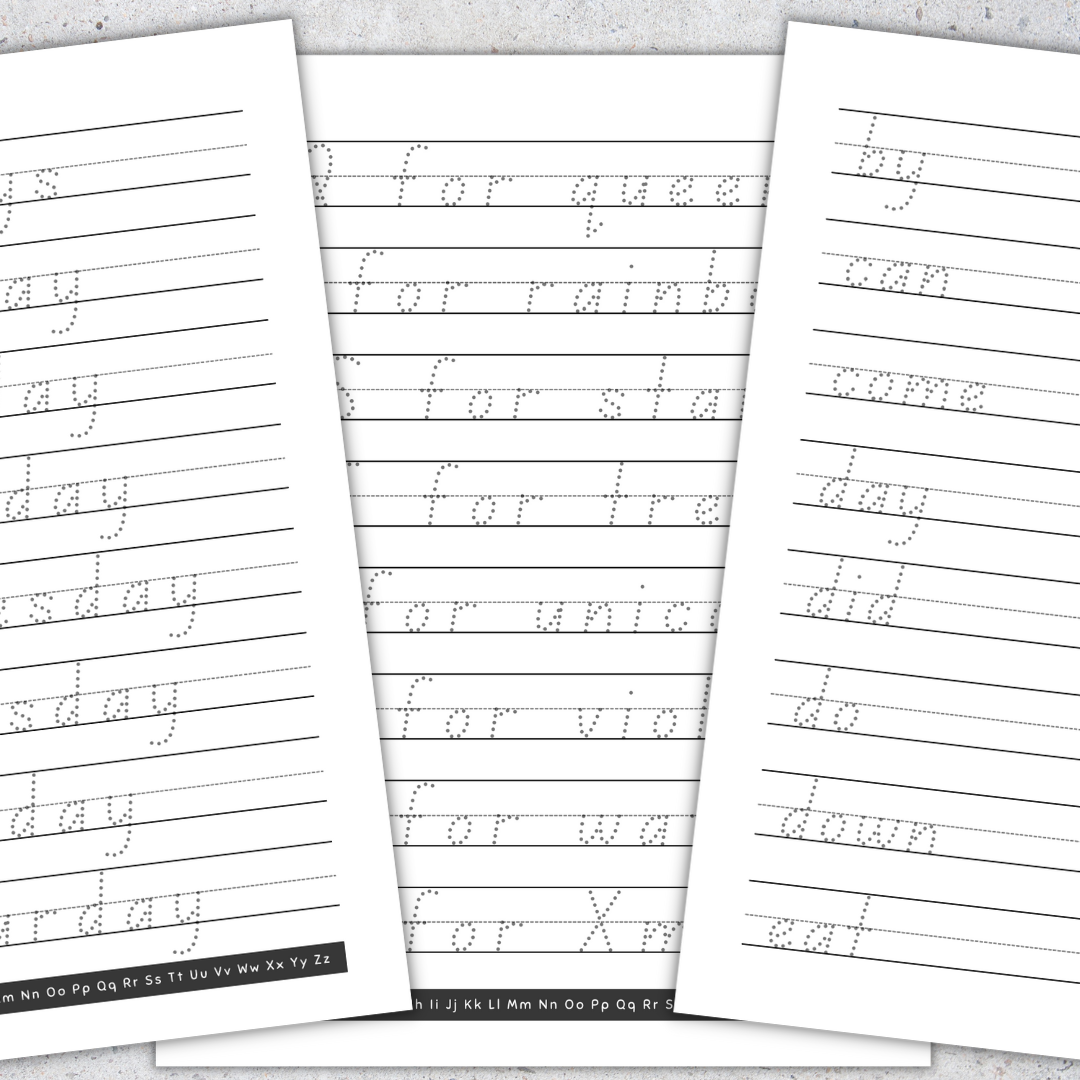 ys
ay
ay
day
sday
sday
day
rday
Nn Oo Pp Qq Rr Ss Tt Uu Vv Ww Xx Yy Zz
for quee
for rainb
S for sta
for tre
for unic
for viol
for wa
for Xm
Ii Jj Kk Ll Mm Nn Oo Pp Qq Rr S
by
can
come
day
did
do
down
eat